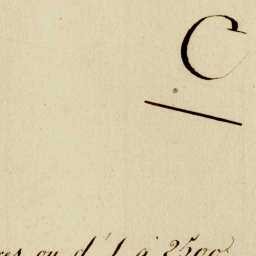 C
ou d'1 à 2500